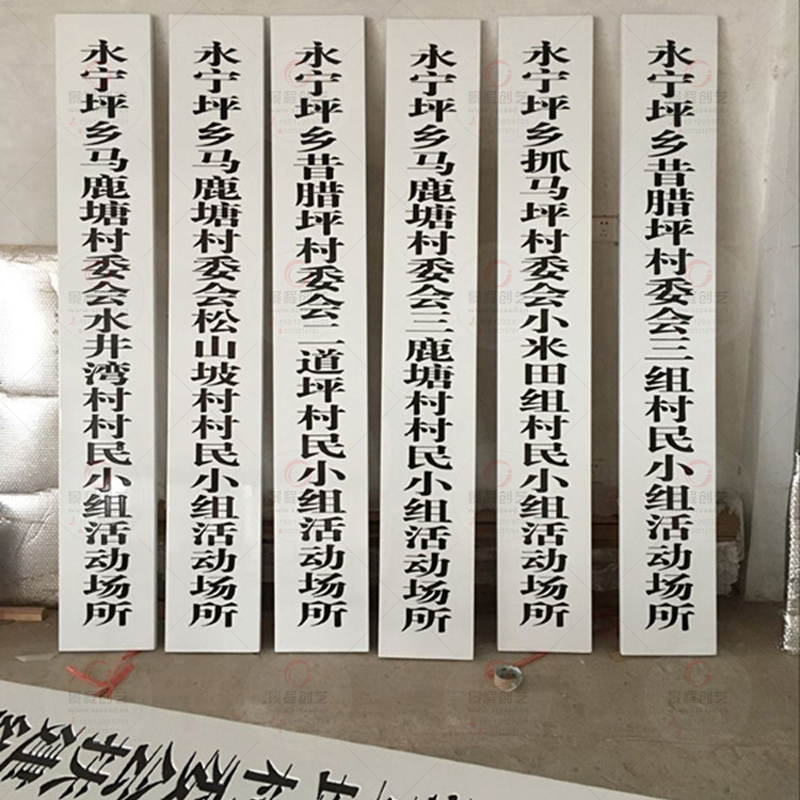 永宁坪乡马鹿塘村委会水井湾村村民小组活动场所
永宁坪乡马鹿塘村委会松山坡村村民小组活动场所
永宁坪乡昔腊坪村委会二道坪村民小组活动场所
永宁坪乡马鹿塘村委会三鹿塘村村民小组活动场所
永宁坪乡抓马坪村委会小米田组村民小组活动场所
永宁坪乡昔腊坪村委会三组村民小组活动场所
景程创艺